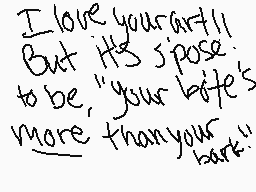 I love your art!!
But it's s'pose
to be, "your bite's
more than your
bark!"